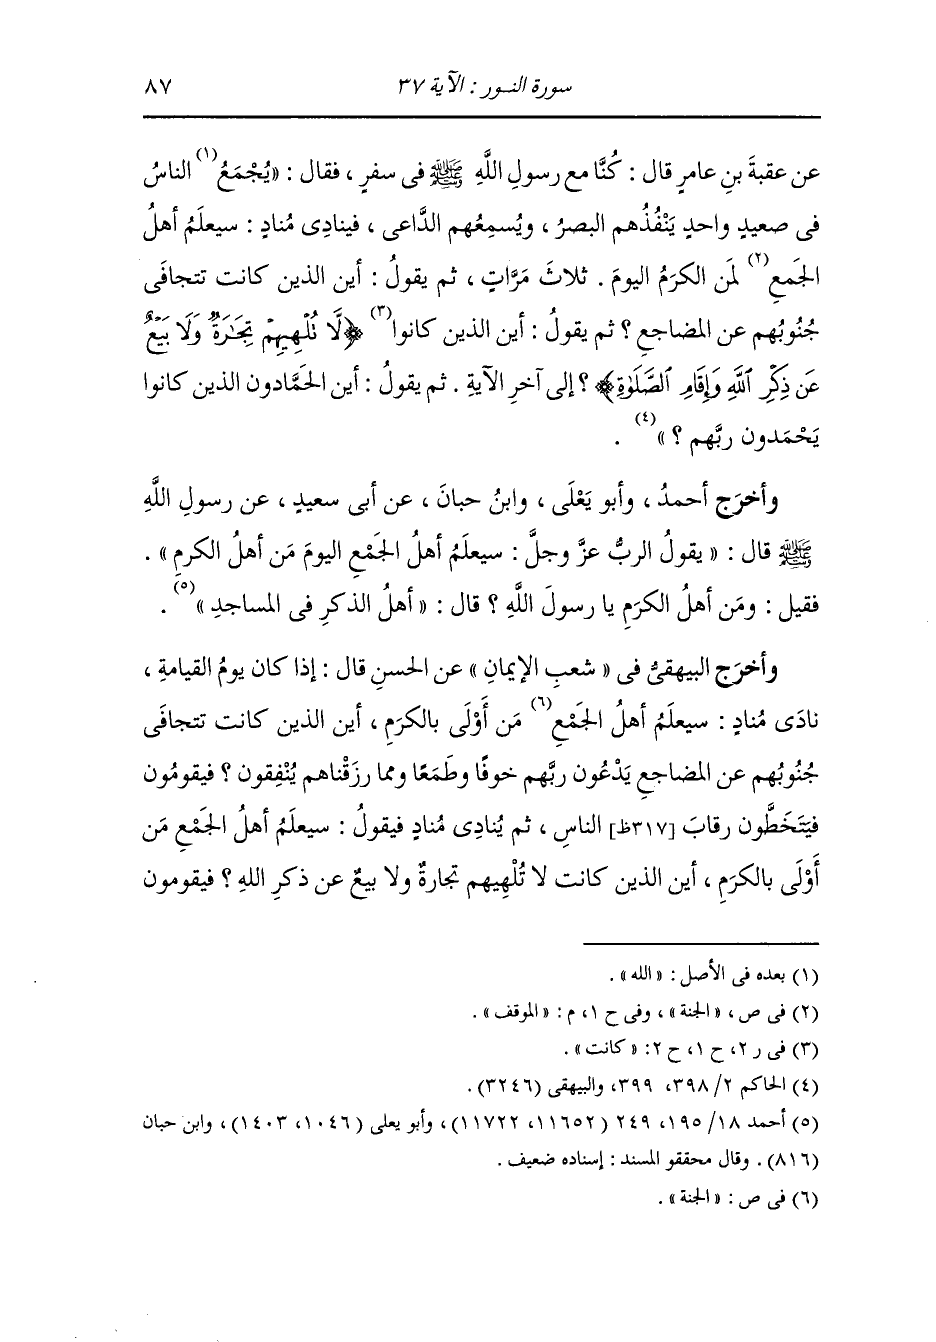 سورة النور : الآية ٣٧ ٨٧
عن عقبةَ بنِ عامرٍ قال : كُنَّا مع رسولِ اللَّهِ ﷺ فى سفرٍ ، فقال : «يُجْمَعُ(١) الناسُ
فى صعيدٍ واحدٍ يَنْفُذُهم البصرُ ، ويُسمِعُهم الدَّاعى ، فينادِى مُنادٍ : سيعلَمُ أهلُ
الجَمعِ(٢) لمَن الكرَمُ اليومَ . ثلاثَ مَرَّاتٍ ، ثم يقولُ : أين الذين كانت تتجافَى
جُنُوبُهم عن المضاجعِ ؟ ثم يقولُ : أين الذين كانوا(٣) ﴿لَّا تُلْهِيهِمْ تِجَٰرَةٌ وَلَا بَيْعٌ
عَن ذِكْرِ ٱللَّهِ وَإِقَامِ ٱلصَّلَوٰةِ﴾ ؟ إلى آخرِ الآيةِ . ثم يقولُ : أين الحَمَّادون الذين كانوا
يَحْمَدون ربَّهم ؟ »(٤) .
وأخرَج أحمدُ ، وأبو يَعْلَى ، وابنُ حبانَ ، عن أبى سعيدٍ ، عن رسولِ اللَّهِ
ﷺ قال : « يقولُ الربُّ عزَّ وجلَّ : سيعلَمُ أهلُ الجَمْعِ اليومَ مَن أهلُ الكرمِ » .
فقيل : ومَن أهلُ الكرَمِ يا رسولَ اللَّهِ ؟ قال : « أهلُ الذكرِ فى المساجدِ »(٥) .
وأخرَج البيهقىُّ فى « شعبِ الإيمانِ » عن الحسنِ قال : إذا كان يومُ القيامةِ ،
نادَى مُنادٍ : سيعلَمُ أهلُ الجَمْعِ(٦) مَن أَوْلَى بالكرَمِ ، أين الذين كانت تتجافَى
جُنُوبُهم عن المضاجعِ يَدْعُون ربَّهم خوفًا وطَمَعًا ومما رزَقْناهم يُنْفِقون ؟ فيقومُون
فيَتَخَطَّون رقابَ [٣١٧ظ] الناسِ ، ثم يُنادِى مُنادٍ فيقولُ : سيعلَمُ أهلُ الجَمْعِ مَن
أَوْلَى بالكرَمِ ، أين الذين كانت لا تُلْهِيهم تجارةٌ ولا بيعٌ عن ذكرِ اللهِ ؟ فيقومون
(١) بعده فى الأصل : «الله» .
(٢) فى ص ، «الجنة» ، وفى ح ١، م : «الموقف» .
(٣) فى ر ٢، ح ١، ح ٢: «كانت» .
(٤) الحاكم ٢/ ٣٩٨، ٣٩٩، والبيهقى (٣٢٤٦) .
(٥) أحمد ١٨/ ١٩٥، ٢٤٩ (١١٦٥٢، ١١٧٢٢)، وأبو يعلى (١٠٤٦، ١٤٠٣)، وابن حبان
(٨١٦) . وقال محققو المسند : إسناده ضعيف .
(٦) فى ص : «الجنة» .